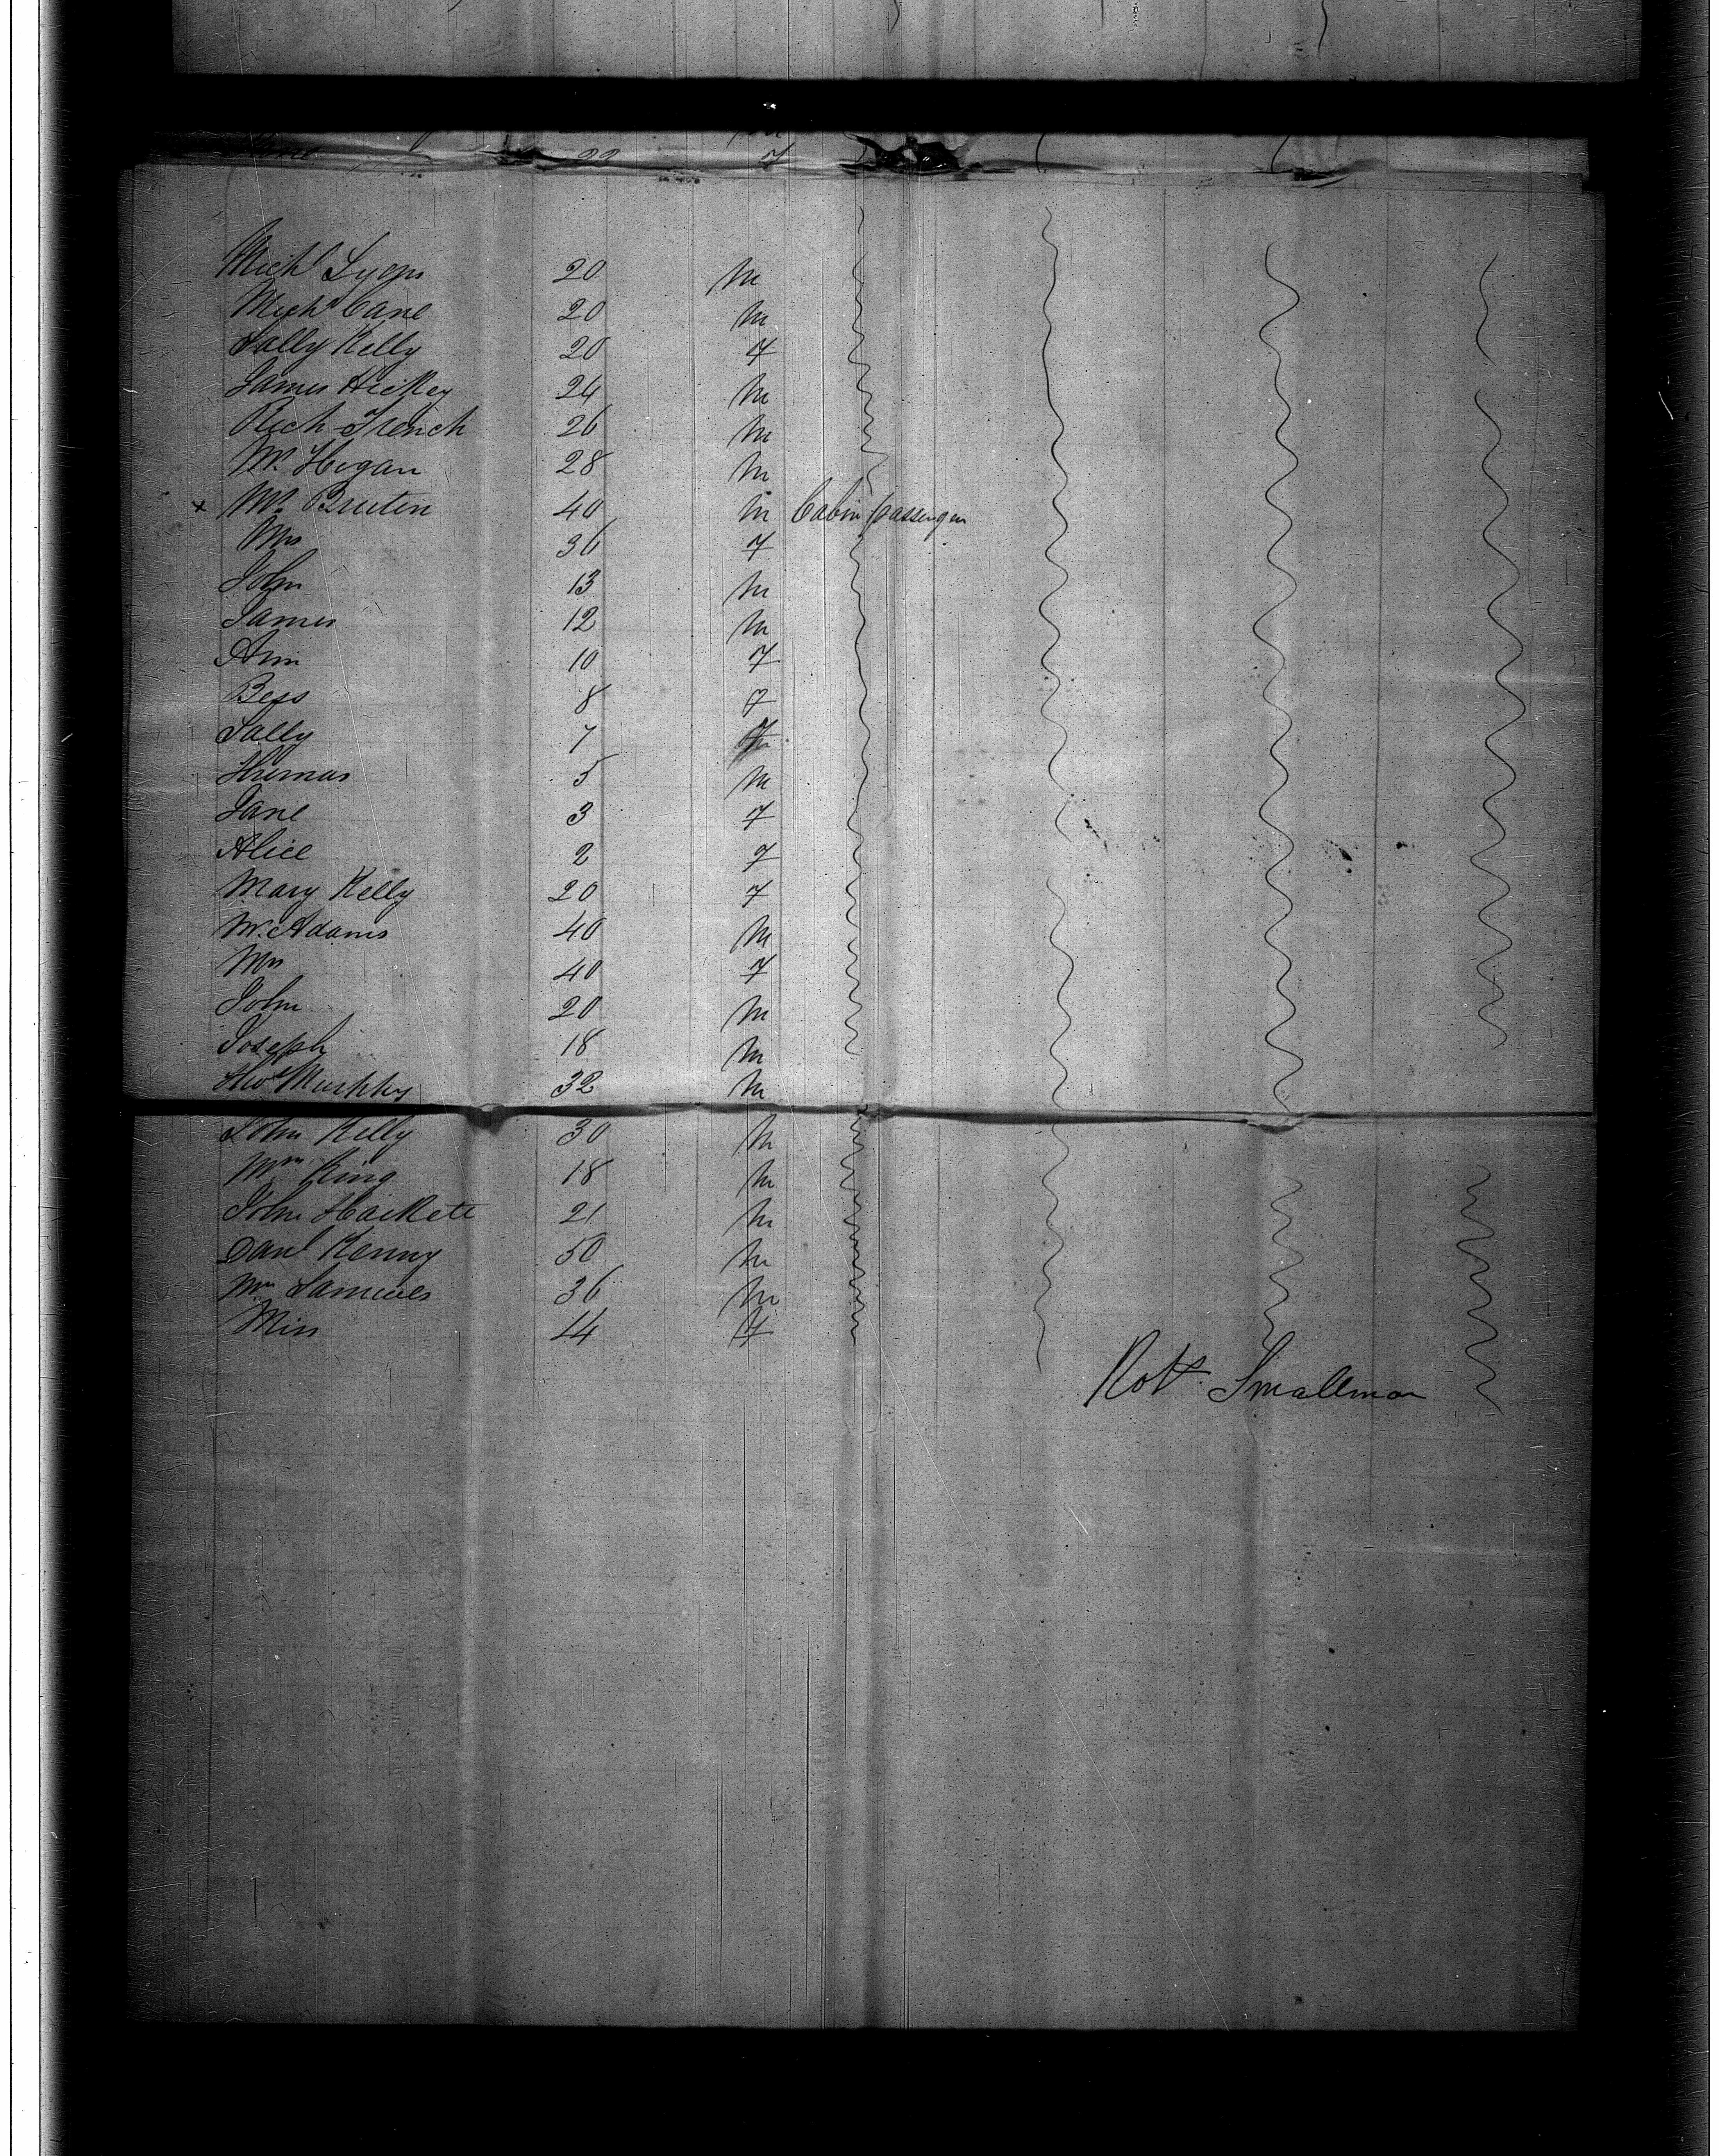 22 F
Mich^l Lyons 20 m
Mich^l Cane 20 m
Sally Kelly 20 F
James Hickey 24 m
Rich French 26 m
W. Hogan 28 m
x Mr. Bruten 40 m Cabin passenger
Mrs 36 F
John 13 m
James 12 m
Ann 10 F
Bess 8 F
Sally 7 F
Thomas 5 m
Jane 3 F
Alice 2 F
Mary Kelly 20 F
W. Adams 40 m
Mrs 40 F
John 20 m
Joseph 18 m
Tho^s Murphy 32 m
John Kelly 30 m
W^m King 18 m
John Hackett 21 m
Dan^l Kenny 50 m
W^m Samuels 36 m
Miss 14 F
Rob^t. Smallman